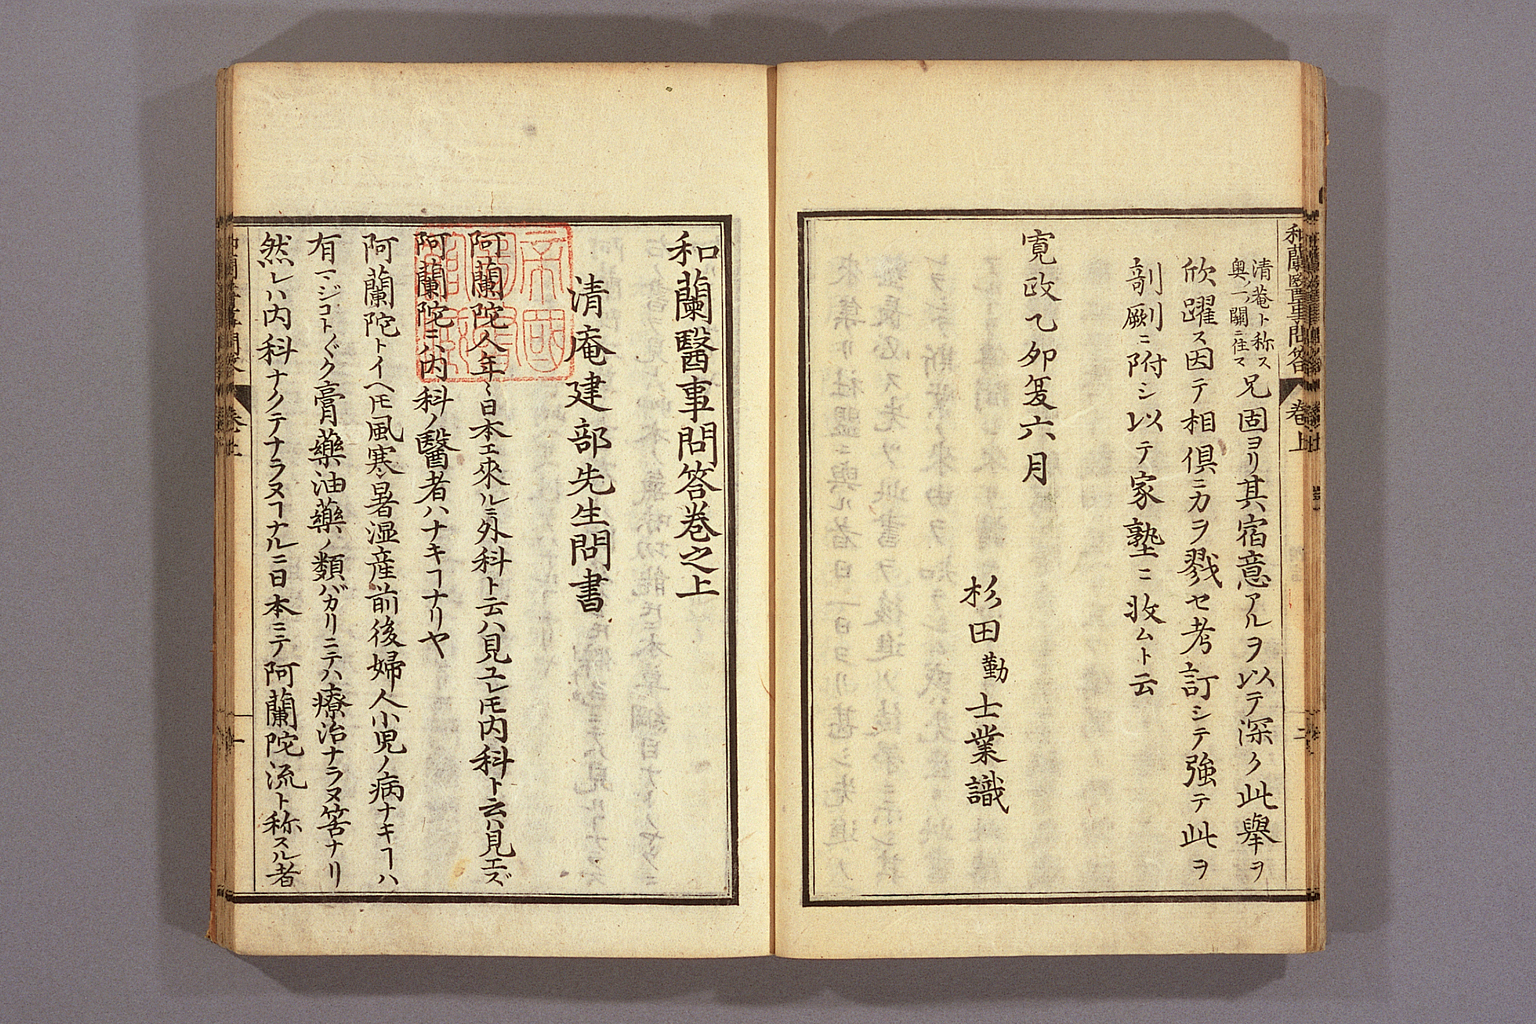 和蘭醫事問答 卷上
清菴ト称ス
奥一ノ關ニ住ス
兄固ヨリ其宿意アルヲ以テ深ク此舉ヲ
欣躍ス因テ相倶ニカヲ戮セ考訂シテ強テ此ヲ
剞劂ニ附シ以テ家塾ニ收ムト云
寛政乙夘夏六月
杉田勤士業識
和蘭醫事問答卷之上
清庵建部先生問書
阿蘭陀人年〻日本エ來ルニ外科ト云ハ見ユレ𪜈内科ト云ハ見エズ
阿蘭陀ニハ内科ノ醫者ハナキヿナリヤ
阿蘭陀トイヘ𪜈風寒暑湿産前後婦人小児ノ病ナキヿハ
有マジコト〱ク膏藥油藥ノ類バカリニテハ療治ナラヌ筈ナリ
然レハ内科ナクテナラヌヿナルニ日本ニテ阿蘭陀流ト称スル者